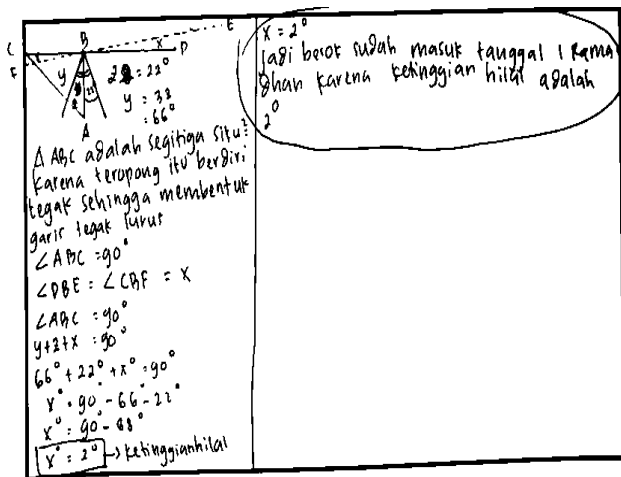 C B x D E
F
y 22
A
2 = 22°
y = 3z
= 66°
Δ ABC adalah segitiga siku²
karena teropong itu berdiri
tegak sehingga membentuk
garis tegak lurus
∠ABC = 90°
∠DBE = ∠CBF = x
∠ABC = 90°
y+z+x = 90°
66° + 22° + x° = 90°
x° = 90° - 66° - 22°
x° = 90° - 88°
x° = 2° → ketinggian hilal
x = 2°
Jadi besok sudah masuk tanggal 1 Rama
dhan karena ketinggian hilal adalah
2°